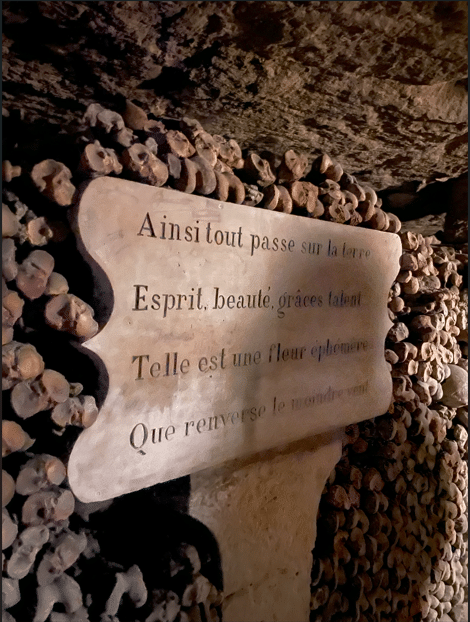 Ainsi tout passe sur la terre
Esprit, beauté, grâces talent
Telle est une fleur éphémère
Que renverse le moindre vent